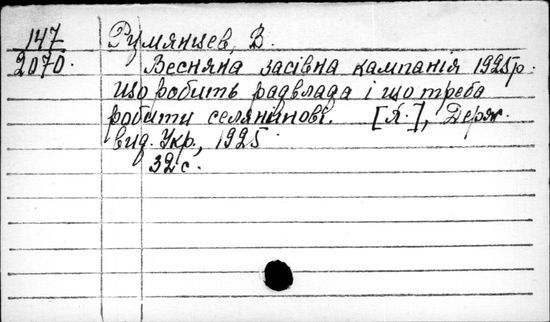 147
2070.
Румянцев, В.
Весняна засівна кампанія 1925р.
Що робить радвлада і що треба
робити селянинові. [Х.], Держ.
вид. Укр., 1925
32 с.